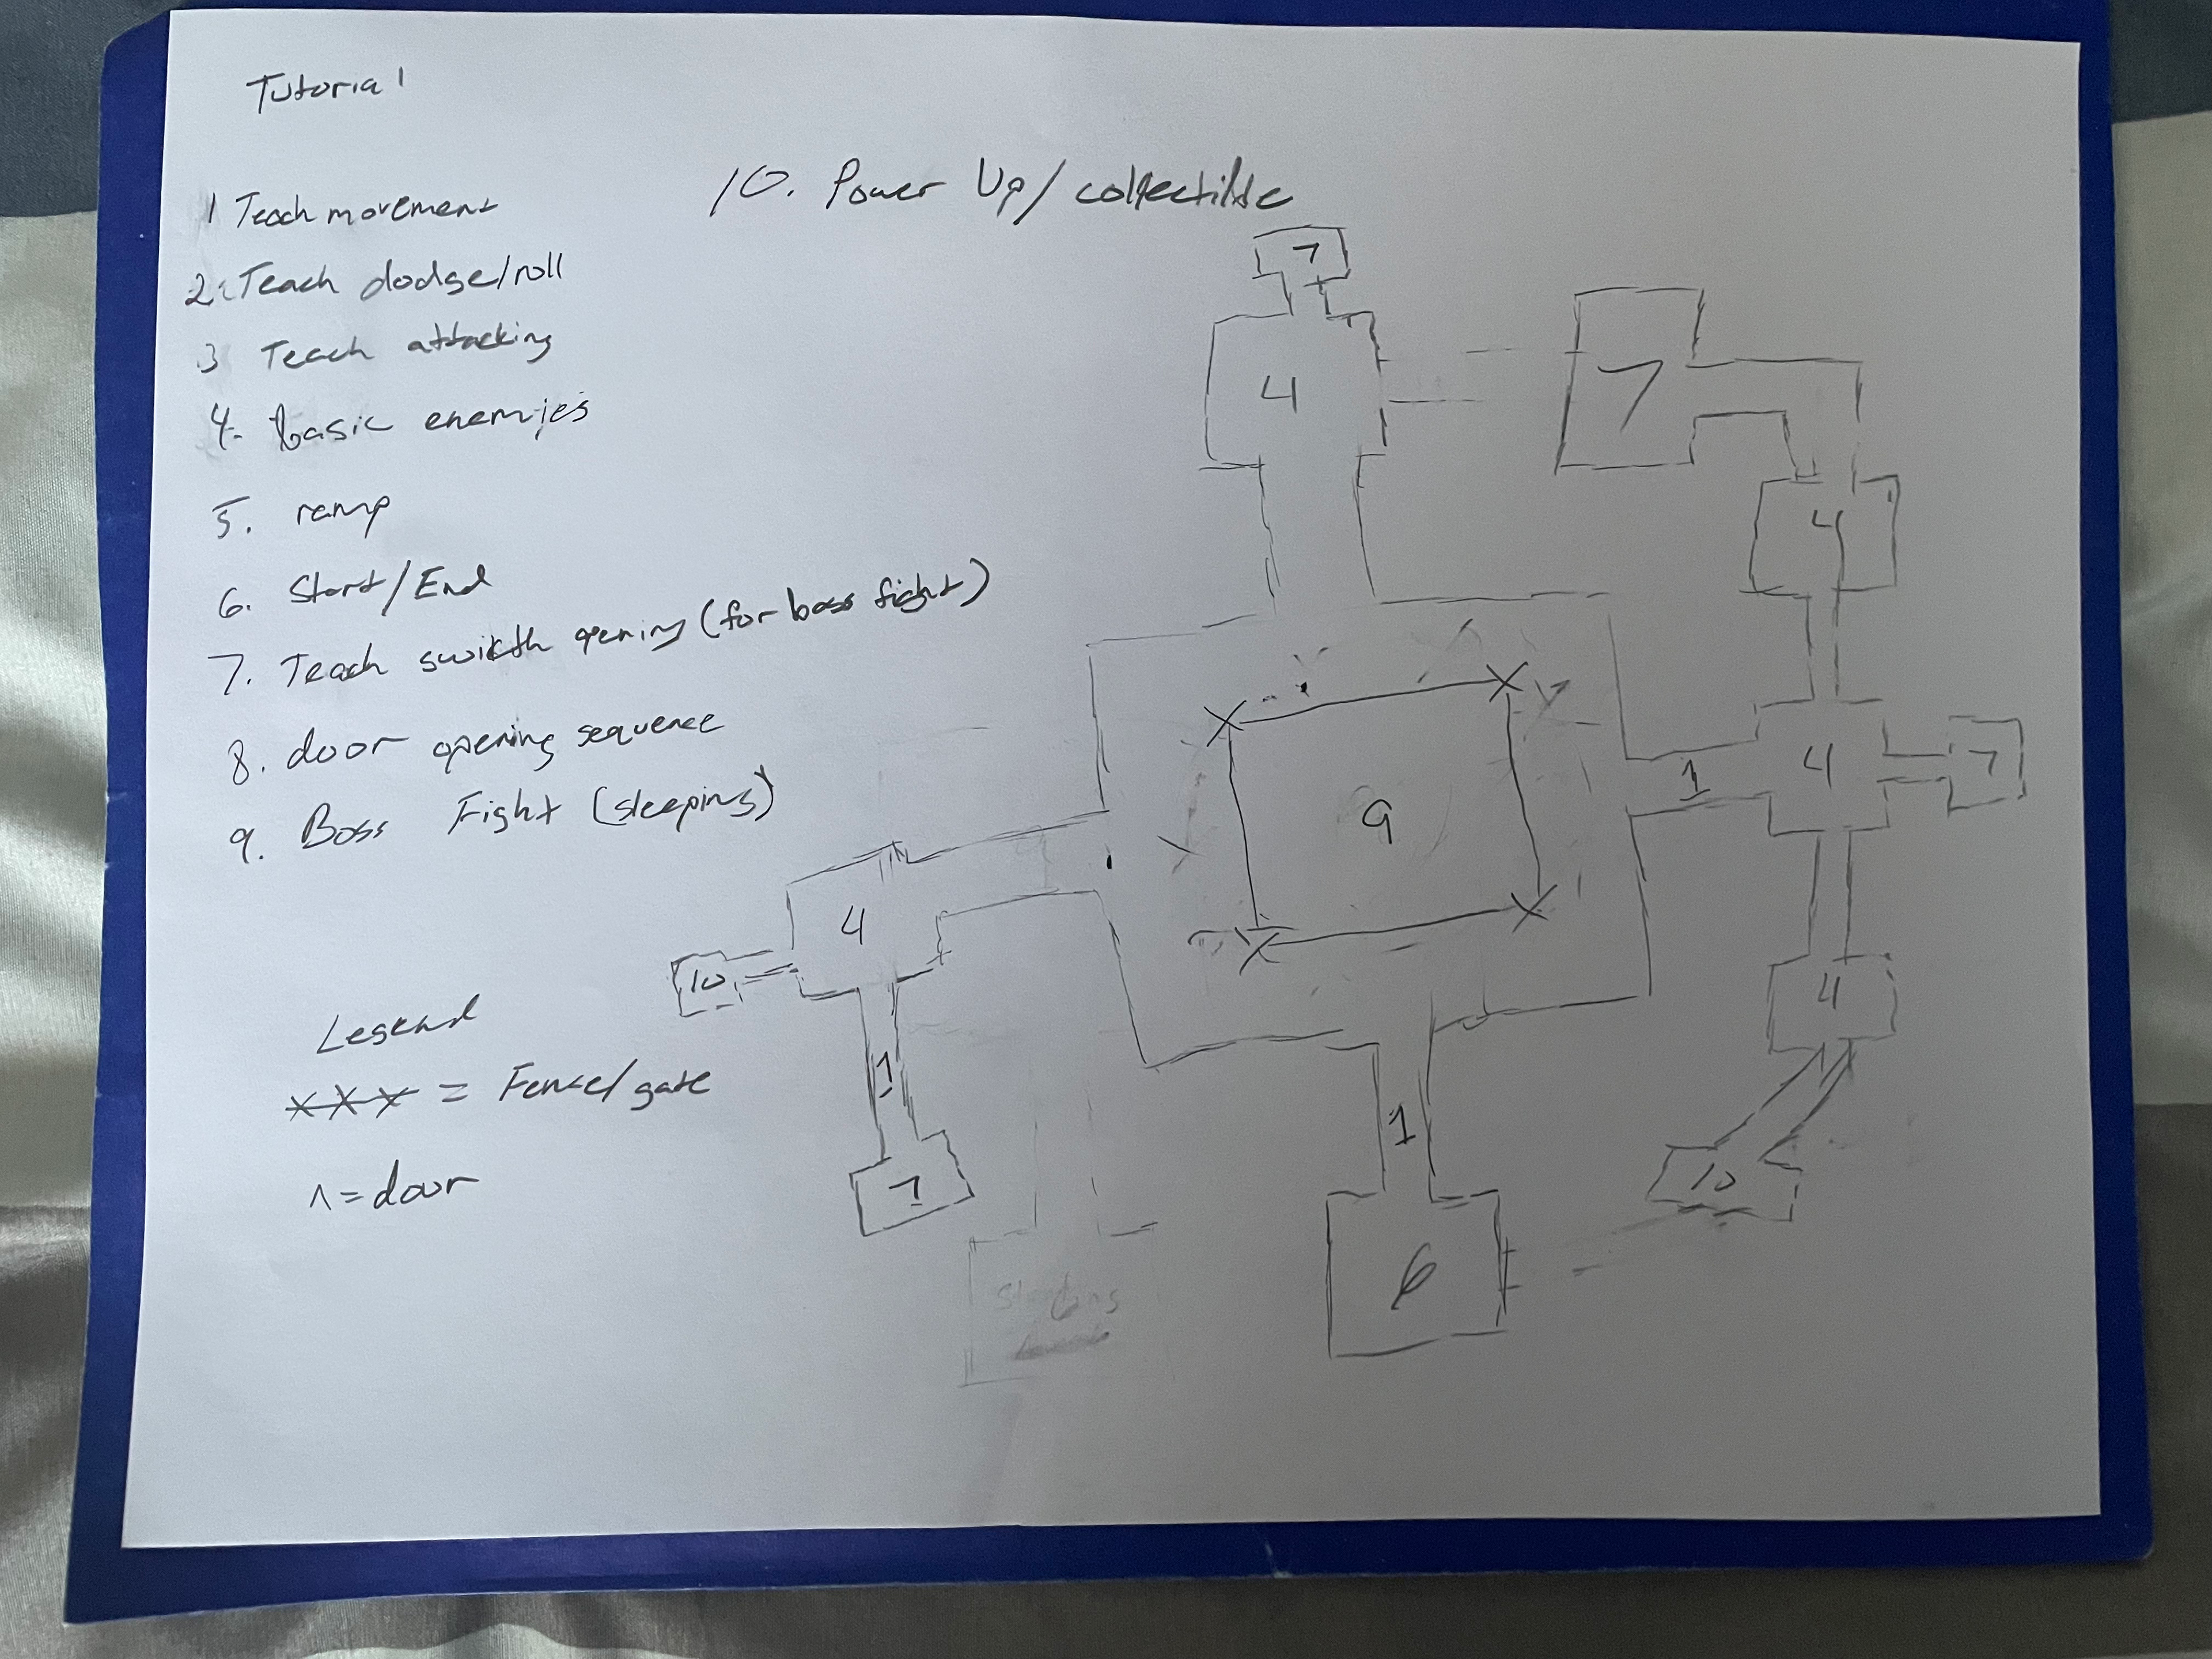 Tutorial
1 Teach movement
2. Teach dodge/roll
3 Teach attacking
4. basic enemies
5. ramp
6. Start/End
7. Teach swicth opening (for boss fight)
8. door opening sequence
9. Boss Fight (sleeping)
10. Power Up/collectible
Legend
xxx = Fence/gate
1 = door
7
4
7
4
4
7
1
9
4
10
4
1
7
1
6
10